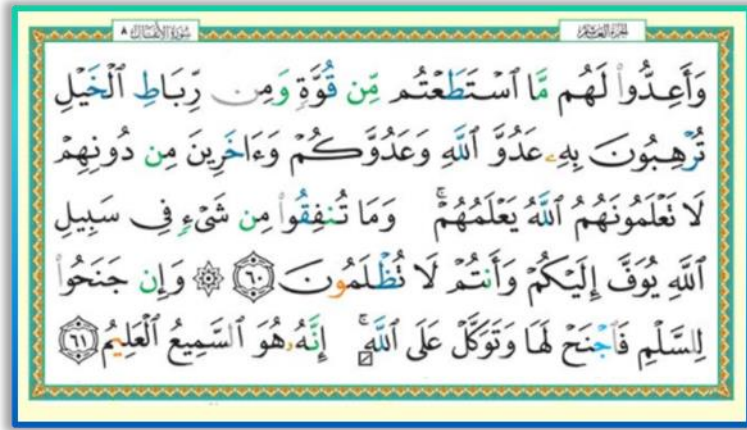 الجزء العاشر سورة الأنفال ٨
وَأَعِدُّوا۟ لَهُم مَّا ٱسْتَطَعْتُم مِّن قُوَّةٍ وَمِن رِّبَاطِ ٱلْخَيْلِ
تُرْهِبُونَ بِهِۦ عَدُوَّ ٱللَّهِ وَعَدُوَّكُمْ وَءَاخَرِينَ مِن دُونِهِمْ
لَا تَعْلَمُونَهُمُ ٱللَّهُ يَعْلَمُهُمْ ۚ وَمَا تُنفِقُوا۟ مِن شَىْءٍ فِى سَبِيلِ
ٱللَّهِ يُوَفَّ إِلَيْكُمْ وَأَنتُمْ لَا تُظْلَمُونَ ٦٠ ۞ وَإِن جَنَحُوا۟
لِلسَّلْمِ فَٱجْنَحْ لَهَا وَتَوَكَّلْ عَلَى ٱللَّهِ ۚ إِنَّهُۥ هُوَ ٱلسَّمِيعُ ٱلْعَلِيمُ ٦١